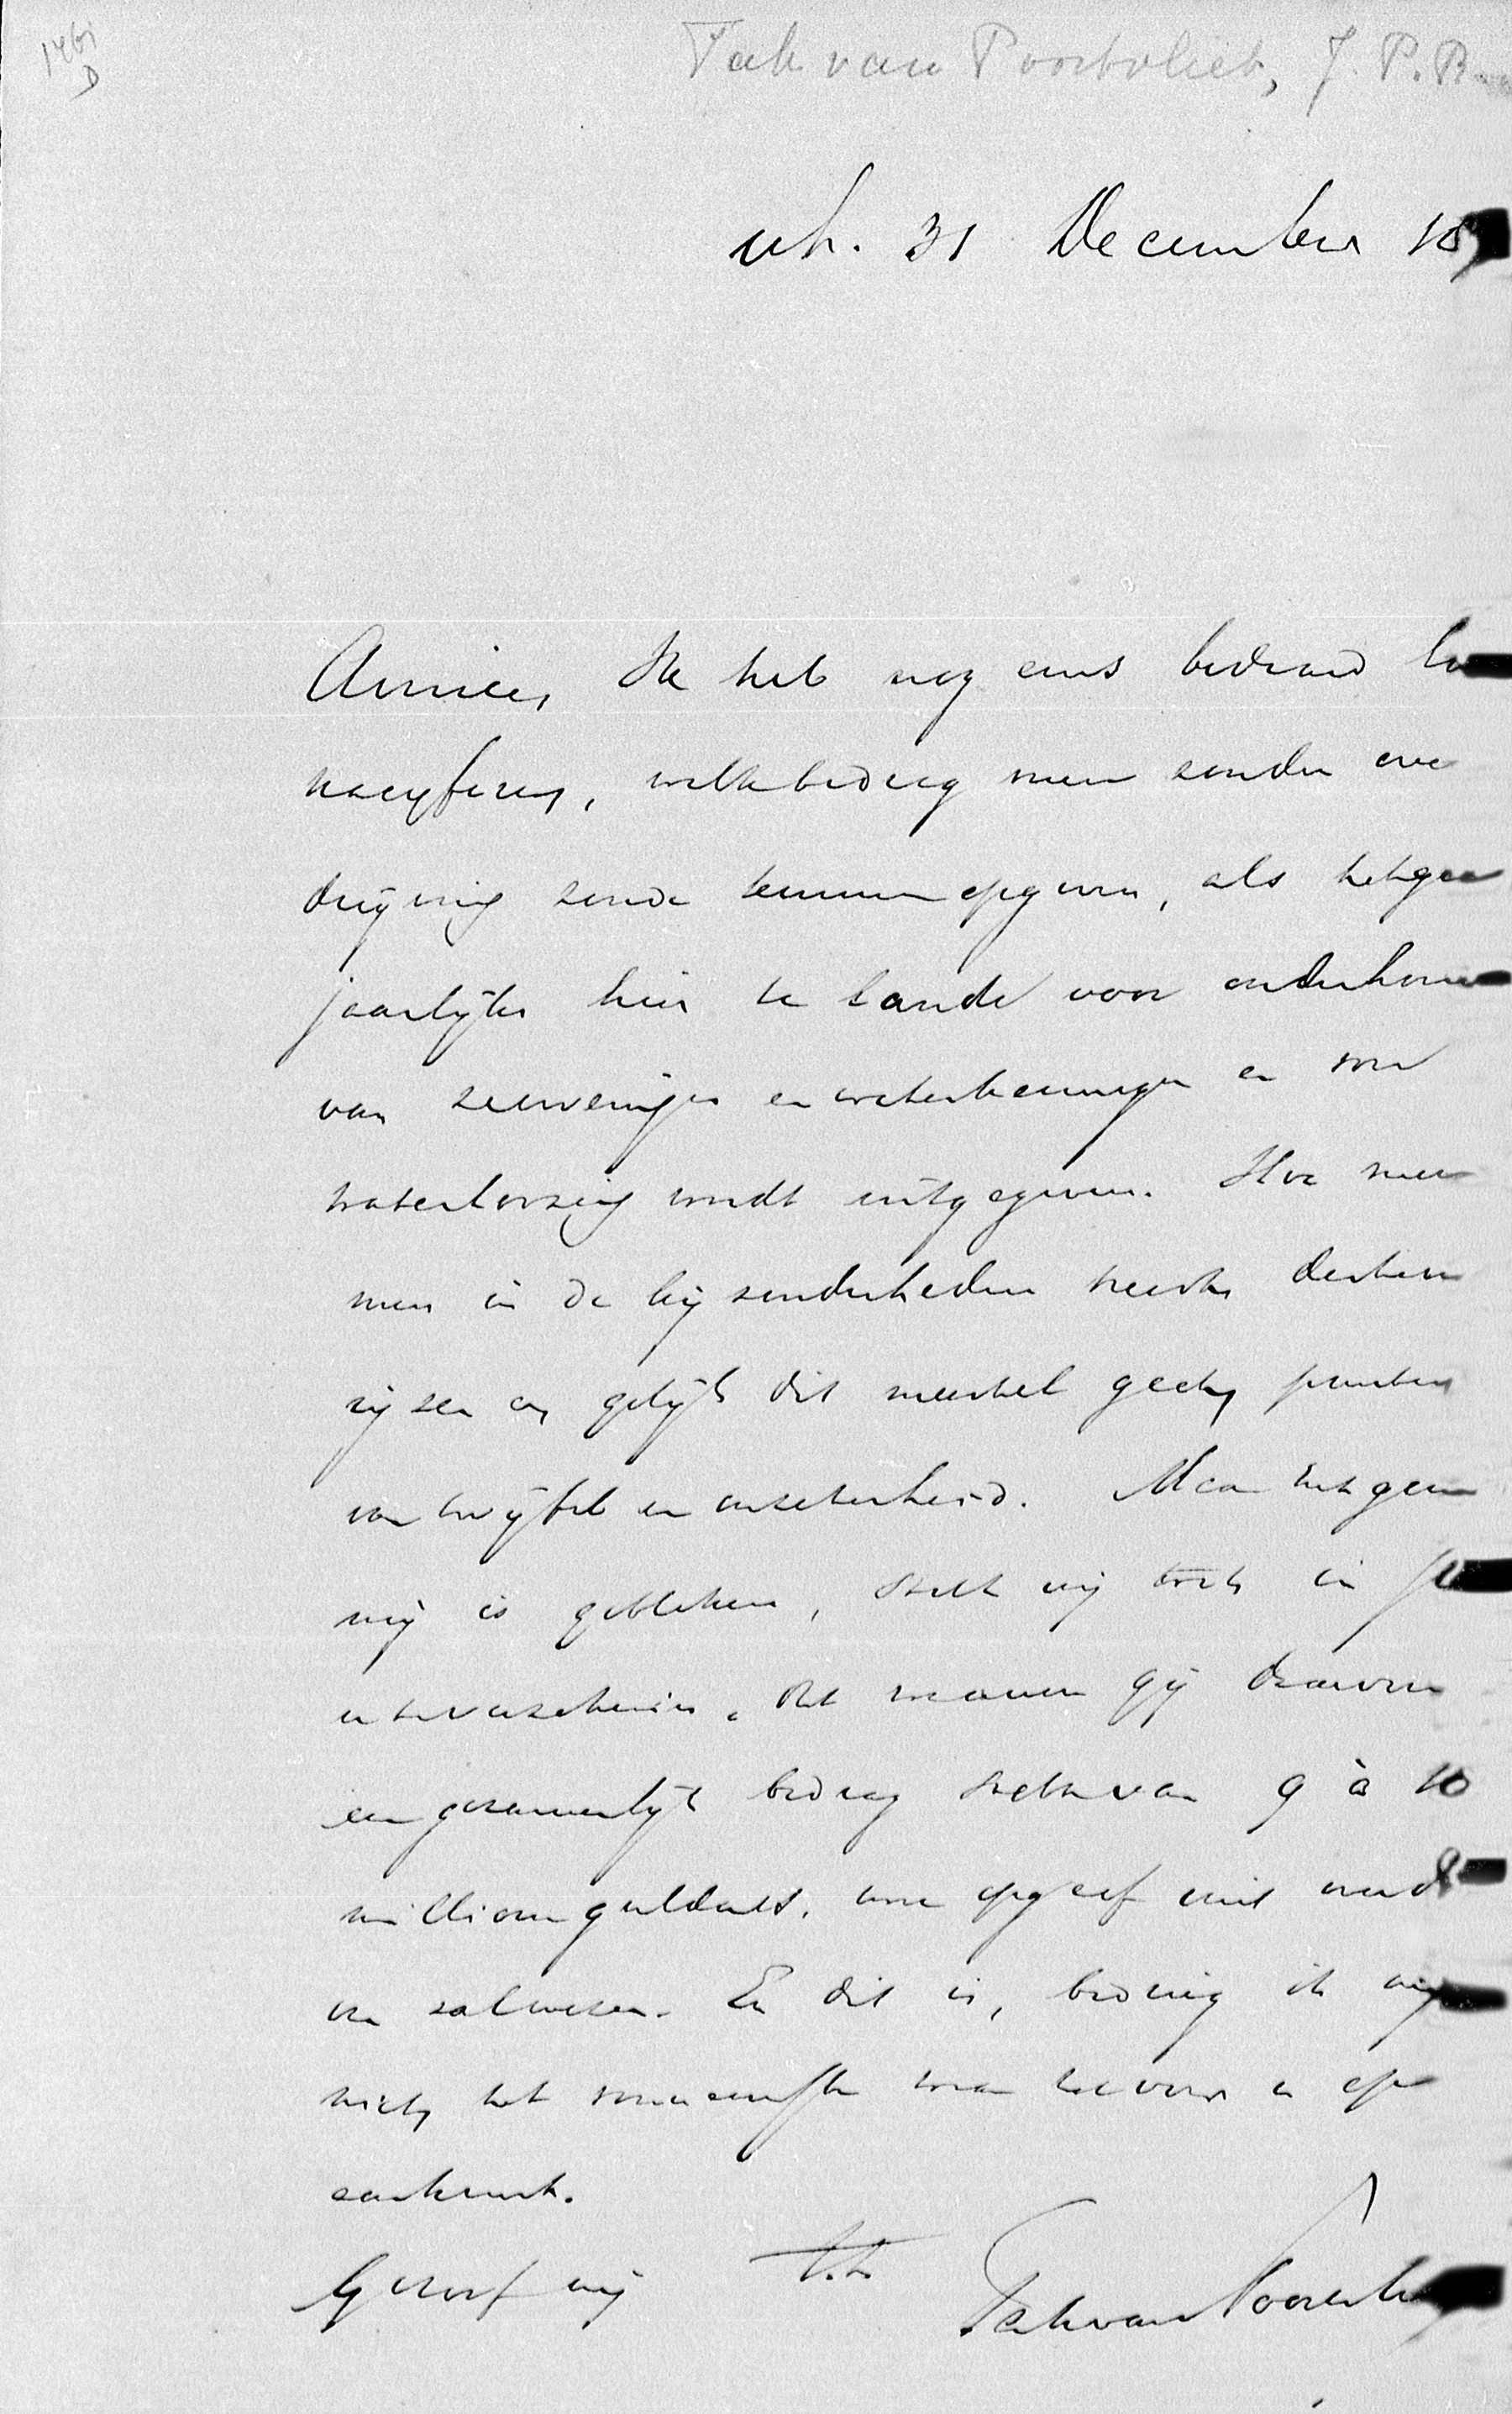 Tak van Poortvliet, J. P. R.
31 December 18
Amice, Ik heb nog eens
nacijferen, welk bedrag men zonder over
drijving zoude kunnen opgeven, als hetgeen
jaarlijks hier te lande voor onderhoud
van zeeweringen en waterkeeringen en voor
waterlozing wordt uitgegeven. Hoe meer
men in de bijzonderheden treedt, des te meer
rijzen er, gelijk dit meestal gaat, punten
van twijfel en onzekerheid. Maar hetgeen
mij is gebleken, stelt mij toch in
dat wanneer gij daarvoor
een gezamenlijk bedrag stelt van 9 à 10
millioen guldens, uwe opgaaf niet
zal wezen. En dit is, bedrieg ik mij
niet, het voornaamste waar het voor u op
aankomt.
Geloof mij t.t.
Tak van Poortvl